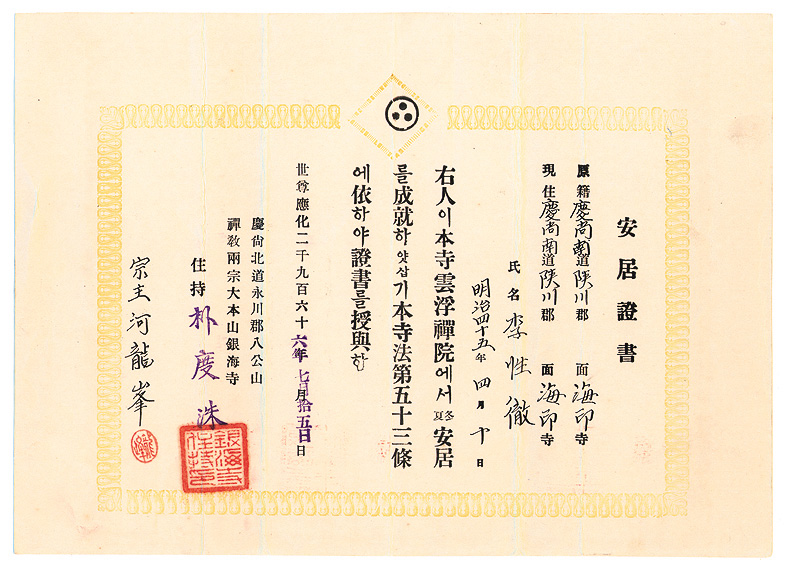 安居證書
原籍 慶尚南道陜川郡 面 海印寺
現住 慶尚南道陜川郡 面 海印寺
氏名 李性徹
明治四十五年四月十日
右人이本寺雲浮禪院에서 夏冬 安居
를成就하얏삽기本寺法第五十三條
에依하야證書를授與함
世尊應化二千九百六十六年七月拾五日
慶尙北道永川郡八公山
禪敎兩宗大本山銀海寺
住持 朴度洙
宗主 河龍峯
銀海寺住持印